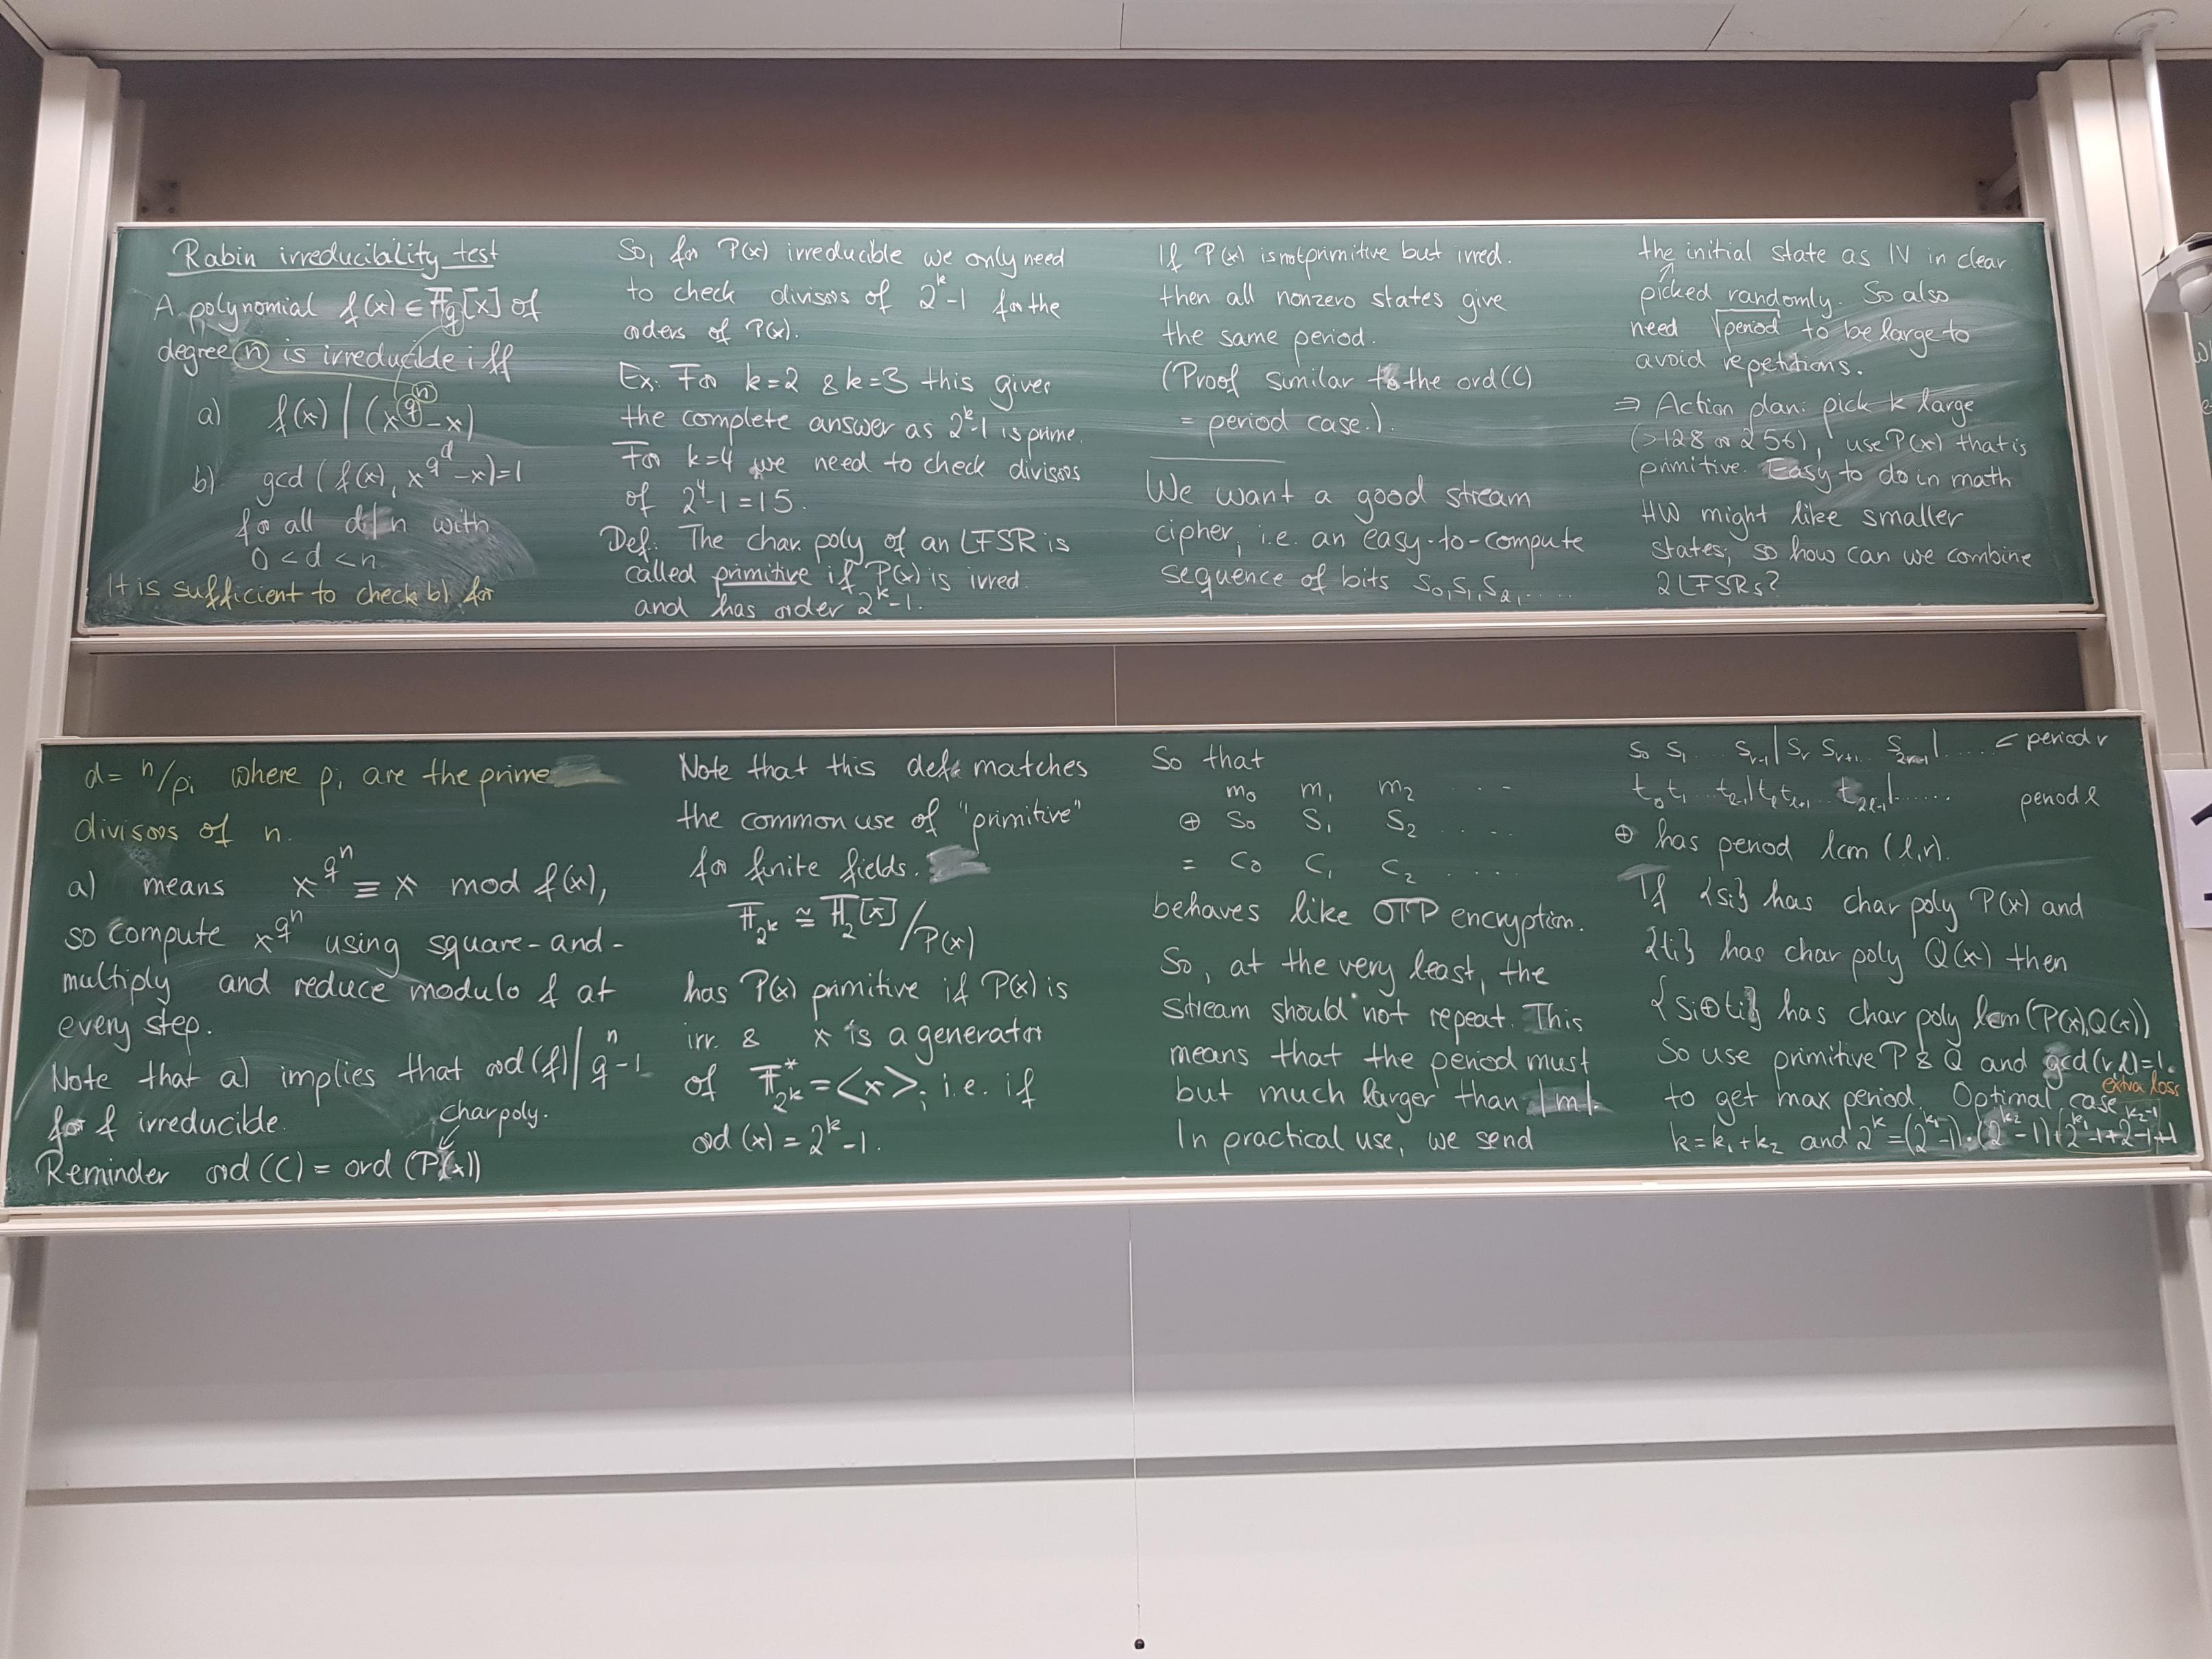 Rabin irreducibility test
A polynomial f(x) ∈ 𝔽_q[x] of
degree n is irreducible iff
a) f(x) | (x^{q^n} - x)
b) gcd(f(x), x^{q^d} - x) = 1
for all d|n with
0 < d < n
It is sufficient to check b) for
d = n/p_i where p_i are the prime
divisors of n.
a) means x^{q^n} ≡ x mod f(x),
so compute x^{q^n} using square-and-
multiply and reduce modulo f at
every step.
Note that a) implies that ord(f) | q^n - 1
for f irreducible.
char poly.
Reminder ord(C) = ord(P(x))
So, for P(x) irreducible we only need
to check divisors of 2^k - 1 for the
orders of P(x).
Ex: For k=2 & k=3 this gives
the complete answer as 2^k - 1 is prime.
For k=4 we need to check divisors
of 2^4 - 1 = 15.
Def: The char. poly of an LFSR is
called primitive if P(x) is irred.
and has order 2^k - 1.
Note that this def matches
the common use of "primitive"
for finite fields.
𝔽_{2^k} ≅ 𝔽_2[x]/P(x)
has P(x) primitive if P(x) is
irr. & x is a generator
of 𝔽*_{2^k} = <x>, i.e. if
ord(x) = 2^k - 1.
If P(x) is not primitive but irred.
then all nonzero states give
the same period.
(Proof similar to the ord(C)
= period case.).
We want a good stream
cipher, i.e. an easy-to-compute
sequence of bits s_0, s_1, s_2, ....
So that
m_0 m_1 m_2 ...
⊕ s_0 s_1 s_2 ....
= c_0 c_1 c_2 ....
behaves like OTP encryption.
So, at the very least, the
stream should not repeat. This
means that the period must
but much larger than |m|.
In practical use, we send
the initial state as IV in clear.
↑
picked randomly. So also
need √period to be large to
avoid repetitions.
⇒ Action plan: pick k large
(>128 or 256), use P(x) that is
primitive. Easy to do in math
HW might like smaller
states; so how can we combine
2 LFSRs?
s_0 s_1 ... s_{r-1} | s_r s_{r+1} ... s_{2r-1} | .... ← period r
t_0 t_1 ... t_{ℓ-1} | t_ℓ t_{ℓ+1} ... t_{2ℓ-1} | ...... period ℓ
⊕ has period lcm(ℓ,r).
If {s_i} has char poly P(x) and
{t_i} has char poly Q(x) then
{s_i ⊕ t_i} has char poly lcm(P(x),Q(x))
So use primitive P & Q and gcd(r,ℓ)=1.
to get max period. Optimal case
extra loss
k = k_1 + k_2 and 2^k = (2^{k_1} - 1)·(2^{k_2} - 1) + 2^{k_1} - 1 + 2^{k_2} - 1 + 1